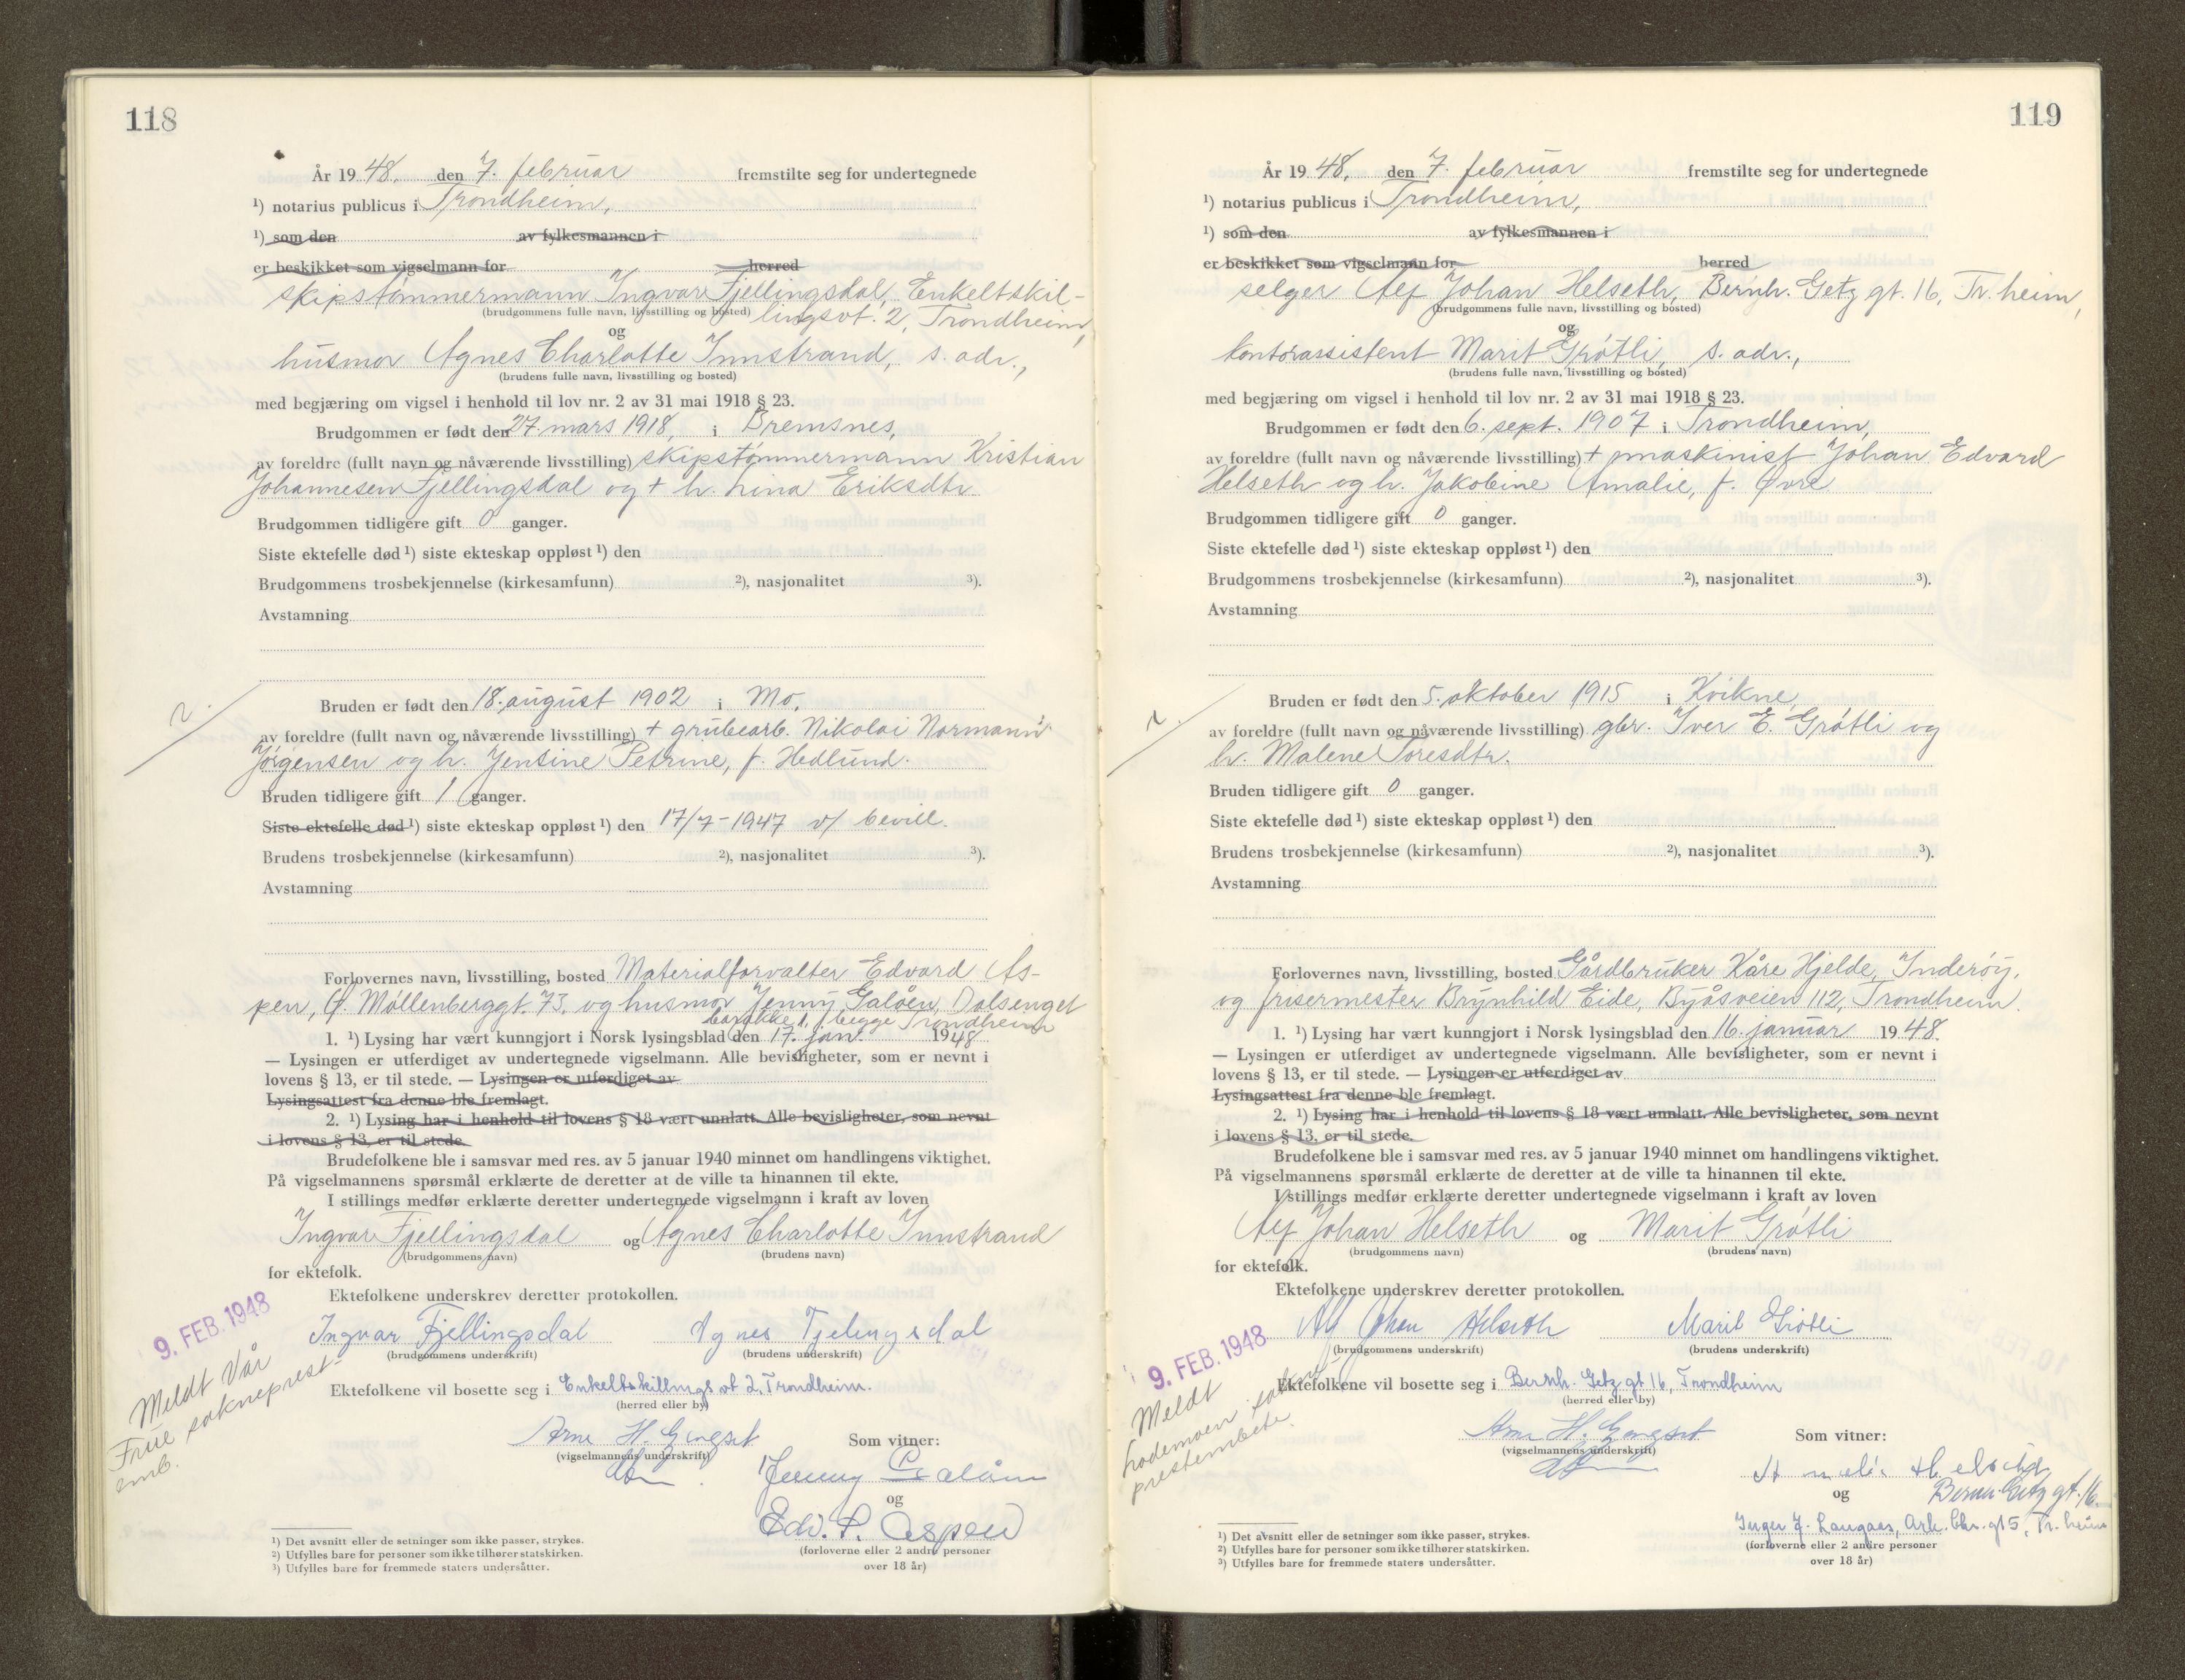 118
År 1948, den 7. februar fremstilte seg for undertegnede
¹) notarius publicus i Trondheim,
¹) som den av fylkesmannen i
er beskikket som vigselmann for herred
skipstømmermann Ingvar Fjellingsdal, Enkeltskil-
(brudgommens fulle navn, livsstilling og bosted) lingsvt. 2, Trondheim,
og
husmor Agnes Charlotte Innstrand, s. adr.,
(brudens fulle navn, livsstilling og bosted)
med begjæring om vigsel i henhold til lov nr. 2 av 31 mai 1918 § 23.
Brudgommen er født den 27. mars 1918, i Bremsnes,
av foreldre (fullt navn og nåværende livsstilling) skipstømmermann Kristian
Johannesen Fjellingsdal og + h. Lina Eriksdtr
Brudgommen tidligere gift 0 ganger.
Siste ektefelle død ¹) siste ekteskap oppløst ¹) den
Brudgommens trosbekjennelse (kirkesamfunn) ²), nasjonalitet ³).
Avstamning
Bruden er født den 18. august 1902 i Mo,
av foreldre (fullt navn og nåværende livsstilling) + grubearb. Nikolai Normann
Jørgensen og h. Jensine Petrine, f. Hedlund.
Bruden tidligere gift 1 ganger.
Siste ektefelle død ¹) siste ekteskap oppløst ¹) den 17/7-1947 v/ bevill.
Brudens trosbekjennelse (kirkesamfunn) ²), nasjonalitet ³).
Avstamning
Forlovernes navn, livsstilling, bosted Materialforvalter Edvard As-
pen, Ø. Møllenberggt. 73, og husmor Jenny Galåen, Dalsenget
barakke 1, begge Trondheim
1. ¹) Lysing har vært kunngjort i Norsk lysingsblad den 17. jan. 1948
— Lysingen er utferdiget av undertegnede vigselmann. Alle bevisligheter, som er nevnt i
lovens § 13, er til stede. — Lysingen er utferdiget av
Lysingsattest fra denne ble fremlagt.
2. ¹) Lysing har i henhold til lovens § 18 vært unnlatt. Alle bevisligheter, som nevnt
i lovens § 13, er til stede.
Brudefolkene ble i samsvar med res. av 5 januar 1940 minnet om handlingens viktighet.
På vigselmannens spørsmål erklærte de deretter at de ville ta hinannen til ekte.
I stillings medfør erklærte deretter undertegnede vigselmann i kraft av loven
Ingvar Fjellingsdal og Agnes Charlotte Innstrand
(brudgommens navn) (brudens navn)
for ektefolk.
Ektefolkene underskrev deretter protokollen.
9. FEB. 1948
Ingvar Fjellingsdal Agnes Fjelingsdal
(brudgommens underskrift) (brudens underskrift)
Meldt Vår
Frue sokneprest-
emb.
Ektefolkene vil bosette seg i Enkeltskillingsvt 2, Trondheim.
(herred eller by)
Arne H. Gingset Som vitner:
(vigselmannens underskrift)
Jenny Galåen
og
Edv. P. Aspen
(forloverne eller 2 andre personer
over 18 år)
¹) Det avsnitt eller de setninger som ikke passer, strykes.
²) Utfylles bare for personer som ikke tilhører statskirken.
³) Utfylles bare for fremmede staters undersåtter.
119
År 1948, den 7. februar fremstilte seg for undertegnede
¹) notarius publicus i Trondheim,
¹) som den av fylkesmannen i
er beskikket som vigselmann for herred
selger Alf Johan Helseth, Bernh. Getz gt. 16, Tr.heim,
(brudgommens fulle navn, livsstilling og bosted)
og
kontorassistent Marit Grøtli, s. adr.,
(brudens fulle navn, livsstilling og bosted)
med begjæring om vigsel i henhold til lov nr. 2 av 31 mai 1918 § 23.
Brudgommen er født den 6. sept. 1907 i Trondheim,
av foreldre (fullt navn og nåværende livsstilling) + maskinist Johan Edvard
Helseth og h. Jakobine Amalie, f. Øvre
Brudgommen tidligere gift 0 ganger.
Siste ektefelle død ¹) siste ekteskap oppløst ¹) den
Brudgommens trosbekjennelse (kirkesamfunn) ²), nasjonalitet ³).
Avstamning
Bruden er født den 5. oktober 1915 i Kvikne,
av foreldre (fullt navn og nåværende livsstilling) gbr. Iver E. Grøtli og
h. Malene Toresdtr.
Bruden tidligere gift 0 ganger.
Siste ektefelle død ¹) siste ekteskap oppløst ¹) den
Brudens trosbekjennelse (kirkesamfunn) ²), nasjonalitet ³).
Avstamning
Forlovernes navn, livsstilling, bosted Gårdbruker Kåre Hjelde, Inderøy,
og frisermester Brynhild Eide, Byåsveien 112, Trondheim.
1. ¹) Lysing har vært kunngjort i Norsk lysingsblad den 16. januar 1948.
— Lysingen er utferdiget av undertegnede vigselmann. Alle bevisligheter, som er nevnt i
lovens § 13, er til stede. — Lysingen er utferdiget av
Lysingsattest fra denne ble fremlagt.
2. ¹) Lysing har i henhold til lovens § 18 vært unnlatt. Alle bevisligheter, som nevnt
i lovens § 13, er til stede.
Brudefolkene ble i samsvar med res. av 5 januar 1940 minnet om handlingens viktighet.
På vigselmannens spørsmål erklærte de deretter at de ville ta hinannen til ekte.
I stillings medfør erklærte deretter undertegnede vigselmann i kraft av loven
Alf Johan Helseth og Marit Grøtli
(brudgommens navn) (brudens navn)
for ektefolk.
Ektefolkene underskrev deretter protokollen.
9. FEB. 1948
Alf Johan Helseth Marit Grøtli
(brudgommens underskrift) (brudens underskrift)
Meldt
Lademoen sokne-
prestembete.
Ektefolkene vil bosette seg i Bernh. Getz gt 16, Trondheim
(herred eller by)
Arne H. Gingset Som vitner:
(vigselmannens underskrift)
Helseth
og Bernh. Getz gt. 16.
Inger J. Langaas, Ark. Chr. gt 5, Tr.heim
(forloverne eller 2 andre personer
over 18 år)
¹) Det avsnitt eller de setninger som ikke passer, strykes.
²) Utfylles bare for personer som ikke tilhører statskirken.
³) Utfylles bare for fremmede staters undersåtter.